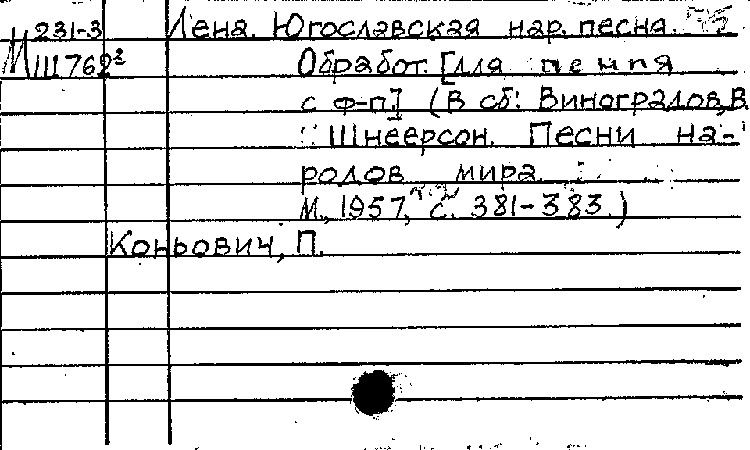 231-3 Лена. Югославская нар. песня.
М III 762² Обработ. [для пения
с ф-п] (В сб: Виноградов, В
Шнеерсон. Песни на-
родов мира.
М., 1957, с. 381-383.)
Коньович, П.